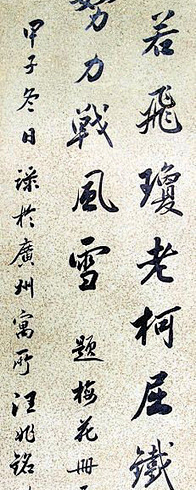 若飛瓊老柯屈鐵
努力戰風雪 題梅花冊
甲子冬日 譟於廣州寓所 汪兆銘